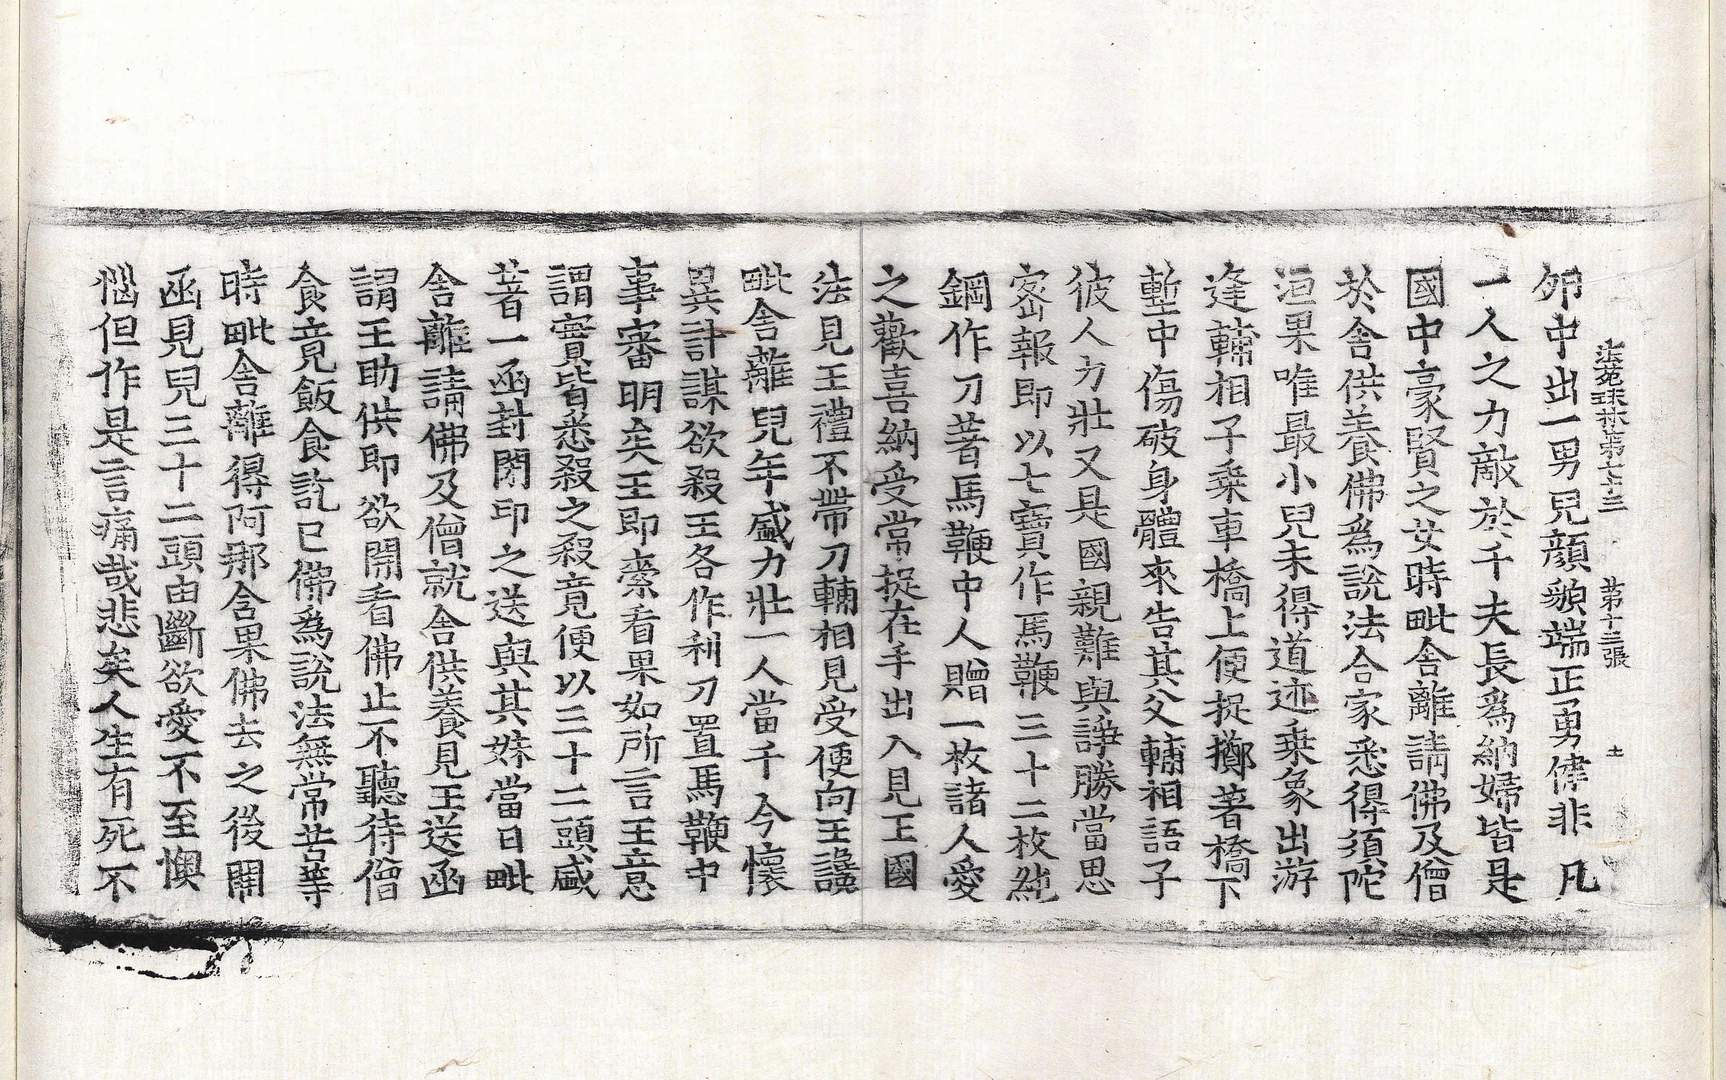 法苑珠林第七十三 第十三張 土
卵中出一男兒顏貌端正勇健非凡
一人之力敵於千夫長為納婦皆是
國中豪賢之女時毗舍離請佛及僧
於舍供養佛為說法合家悉得須陀
洹果唯最小兒未得道迹乗象出游
逢輔相子乗車橋上便捉擲著橋下
塹中傷破身體來告其父輔相語子
彼人力壯又是國親難與諍勝當思
密報即以七寶作馬鞭三十二枚純
鋼作刀著馬鞭中人贈一枚諸人愛
之歡喜納受常捉在手出入見王國
法見王禮不帶刀輔相見受便向王讒
毗舍離兒年盛力壯一人當千今懷
異計謀欲殺王各作利刀置馬鞭中
事審明矣王即索看果如所言王意
謂實皆悉殺之殺竟便以三十二頭盛
著一函封閉印之送與其妹當日毗
舍離請佛及僧就舍供養見王送函
謂王助供即欲開看佛止不聽待僧
食竟飯食訖已佛為說法無常苦等
時毗舍離得阿那含果佛去之後開
函見兒三十二頭由斷欲愛不至懊
惱但作是言痛哉悲矣人生有死不